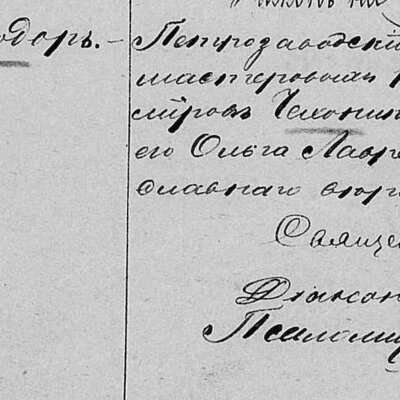 одоръ. –
Петрозаводскі
мастеровая
міровъ Чехонин
его Ольга Лавре
славнаго
Священ
Діакон
Псаломщ